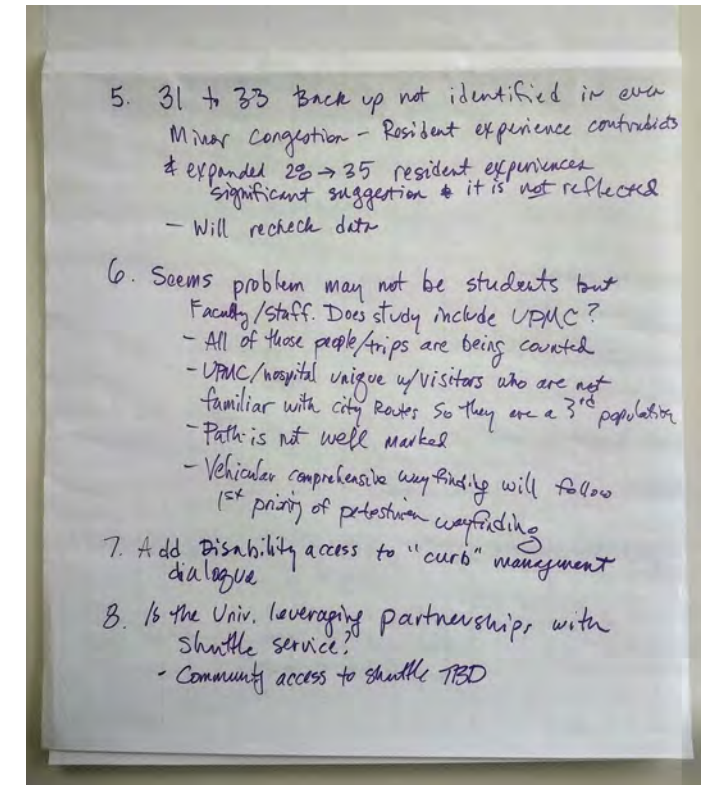 5. 31 to 33 Back up not identified in even
Minor congestion - Resident experience contradicts
& expanded 28 → 35 resident experiences
significant suggestion & it is not reflected
- Will recheck data
6. Seems problem may not be students but
Faculty/Staff. Does study include UPMC?
- All of those people/trips are being counted
- UPMC/hospital unique w/visitors who are not
familiar with city Routes so they are a 3rd population
- Path is not well marked
- Vehicular comprehensive wayfinding will follow
1st priority of pedestrian wayfinding
7. Add Disability access to "curb" management
dialogue
8. Is the Univ. leveraging partnerships with
Shuttle service?
- Community access to shuttle TBD